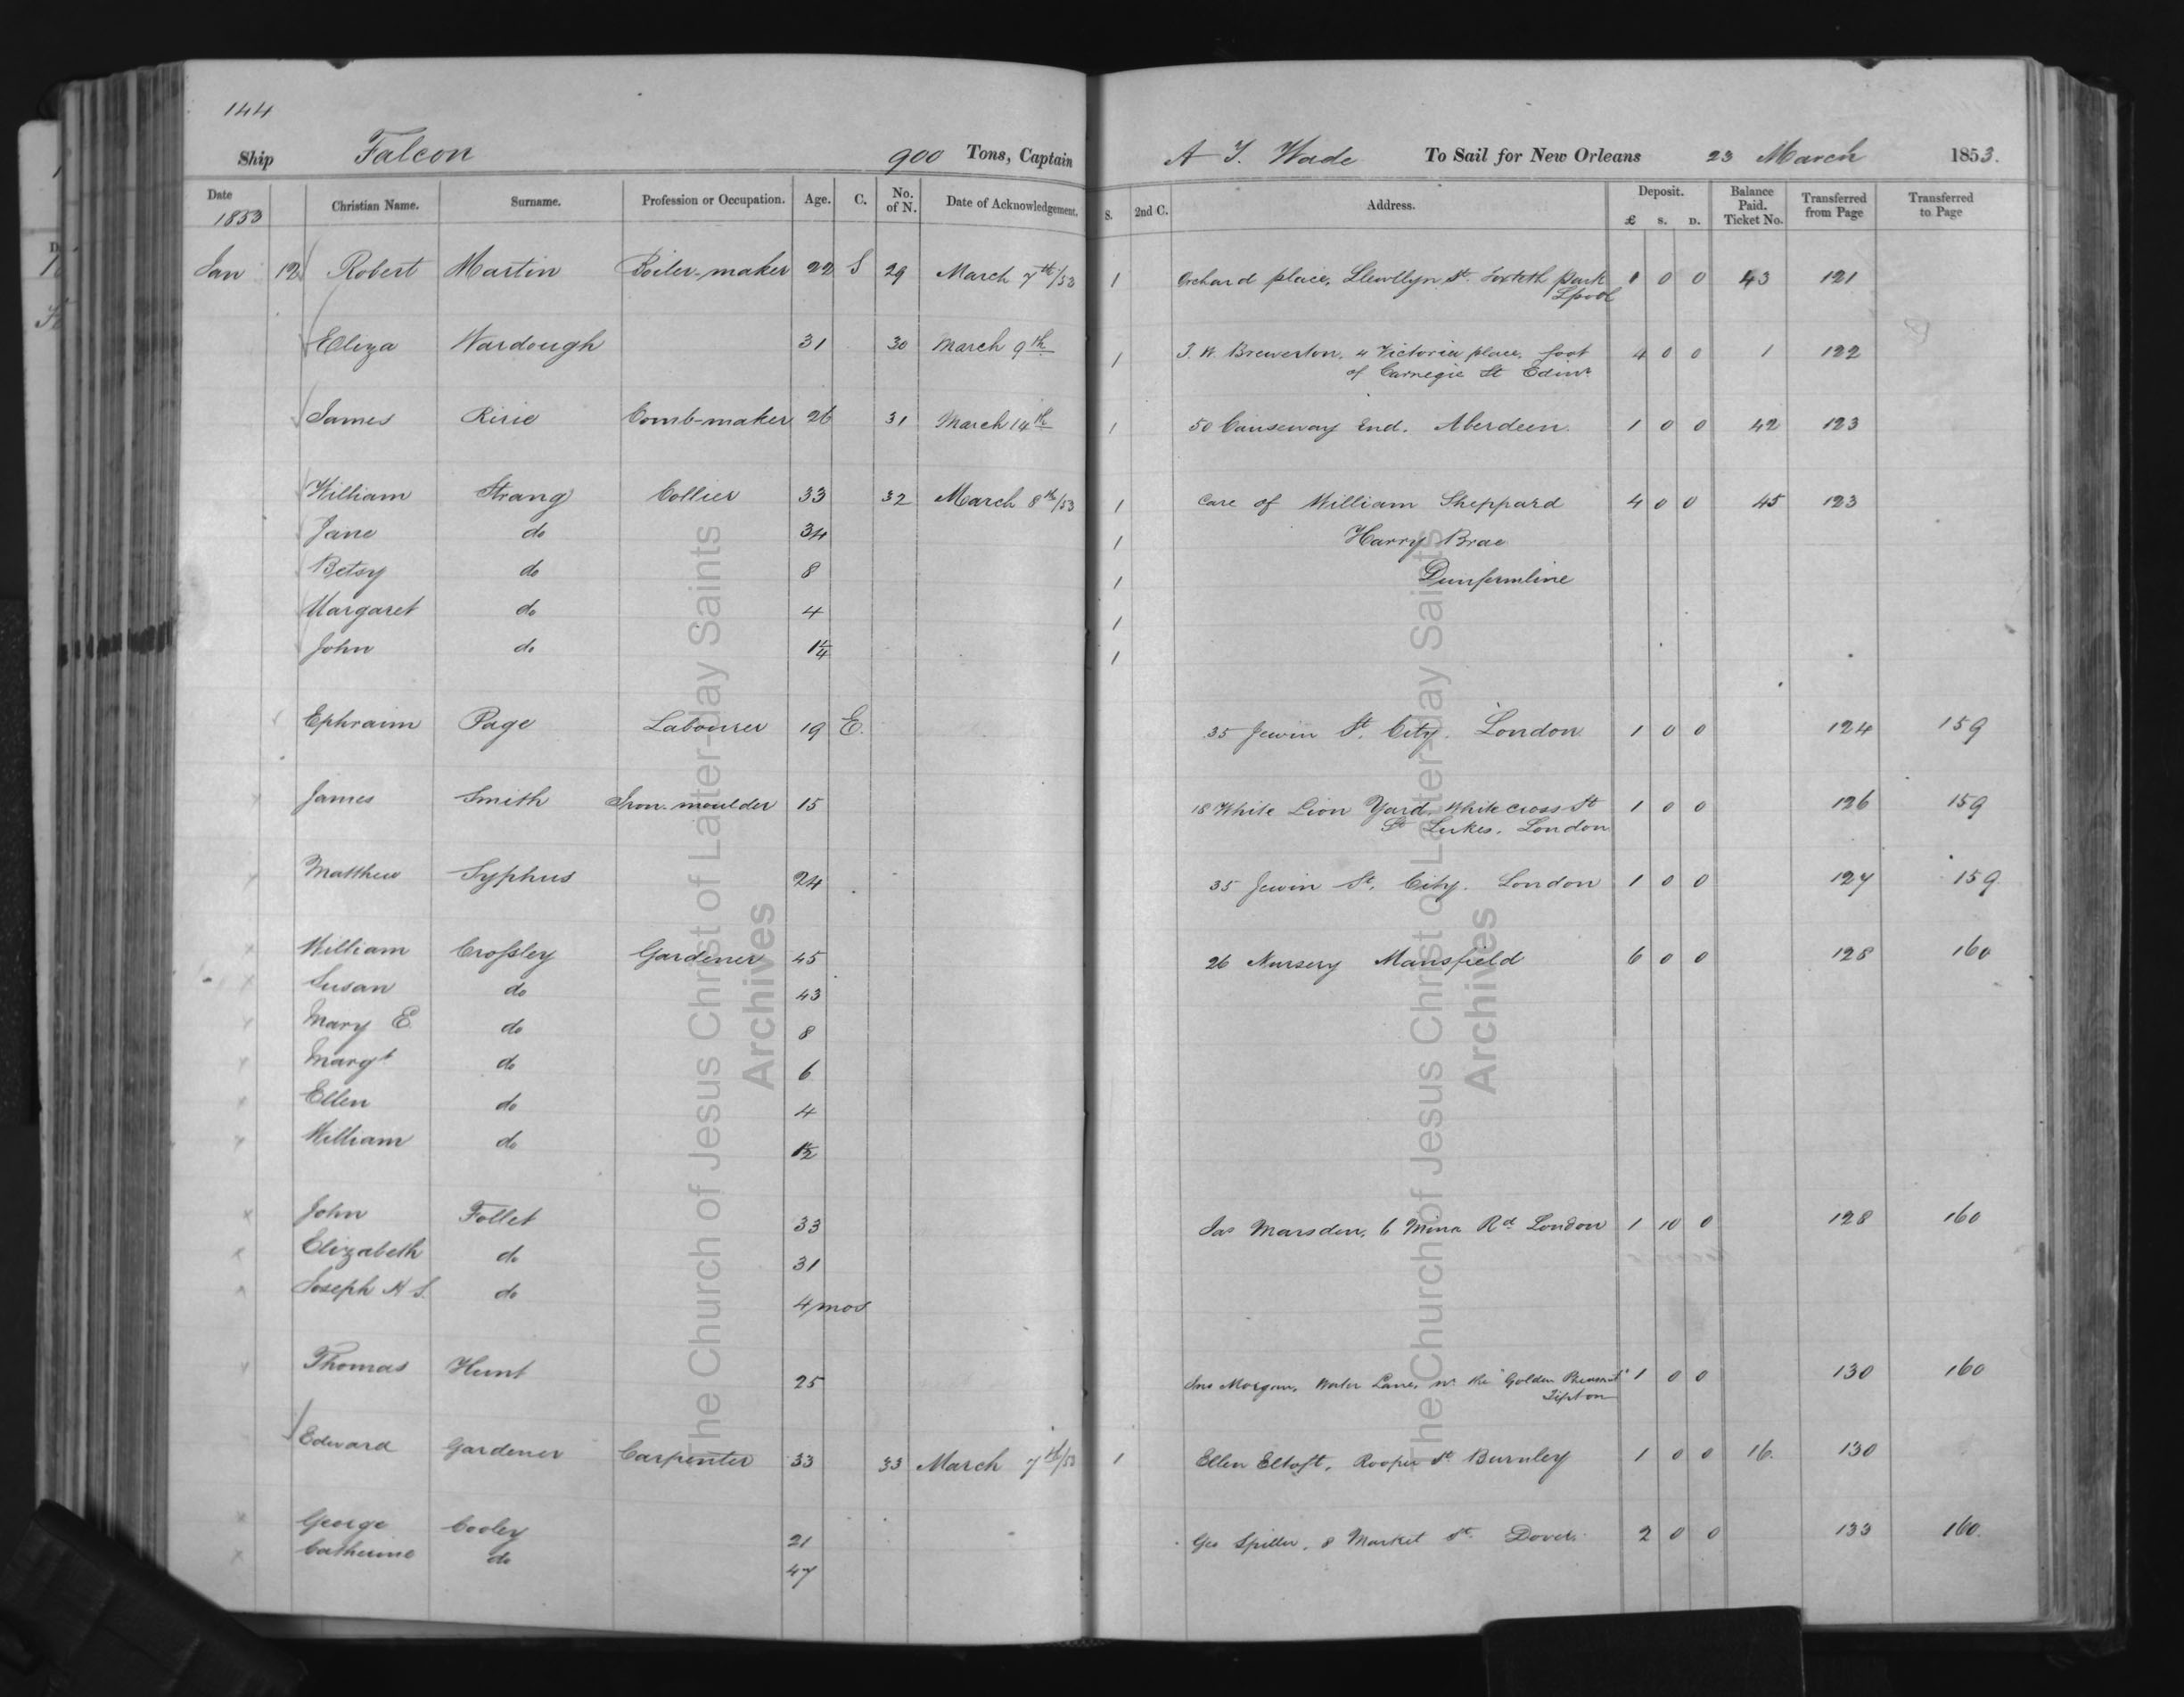 144
Ship Falcon 900 Tons, Captain A J. Wade To Sail for New Orleans 23 March 1853.
Date 1853 Christian Name. Surname. Profession or Occupation. Age. C. No. of N. Date of Acknowledgement. S. 2nd C. Address. Deposit. £ s. D. Balance Paid. Ticket No. Transferred from Page Transferred to Page
Jan 12 Robert Martin Boiler-maker 22 S 29 March 7th/53 1 Orchard place, Llewllyn St. Toxteth park 1 0 0 43 121
Lpool
Eliza Wardough 31 30 March 9th 1 J. W. Brewerton, 4 Victoria place, foot 4 0 0 1 122
of Carnegie St Edinr.
James Ririe Comb-maker 26 31 March 14th 1 50 Causeway End. Aberdeen. 1 0 0 42 123
William Strang Collier 33 32 March 8th/53 1 Care of William Sheppard 4 0 0 45 123
Jane do 34 1 Harry Brae
Betsy do 8 1 Dunfermline
Margaret do 4 1
John do 1¼ 1
Ephraim Page Labourer 19 E. 35 Jewin St. City. London 1 0 0 124 159
James Smith Iron-moulder 15 18 White Lion Yard, Whitecross St 1 0 0 126 159
St Lukes. London
Matthew Syphus 24 35 Jewin St. City. London 1 0 0 127 159
William Crossley Gardener 45 26 Nursery Mansfield 6 0 0 128 160
Susan do 43
Mary E. do 8
Margt do 6
Ellen do 4
William do 1½
John Follet 33 Jas Marsden, 6 Mina Rd London 1 10 0 128 160
Elizabeth do 31
Joseph H S. do 4 mos
Thomas Hunt 25 Jno Morgan, Water Lane, nr. the "Golden Pheasant" 1 0 0 130 160
Tipton
Edward Gardener Carpenter 33 33 March 7th/53 1 Ellen Eltoft, Rooper St Burnley 1 0 0 16. 130
George Cooley 21 Geo Spiller, 8 Market St. Dover. 2 0 0 133 160.
Catherine do 47
The Church of Jesus Christ of Latter-day Saints
Archives
The Church of Jesus Christ of Latter-day Saints
Archives